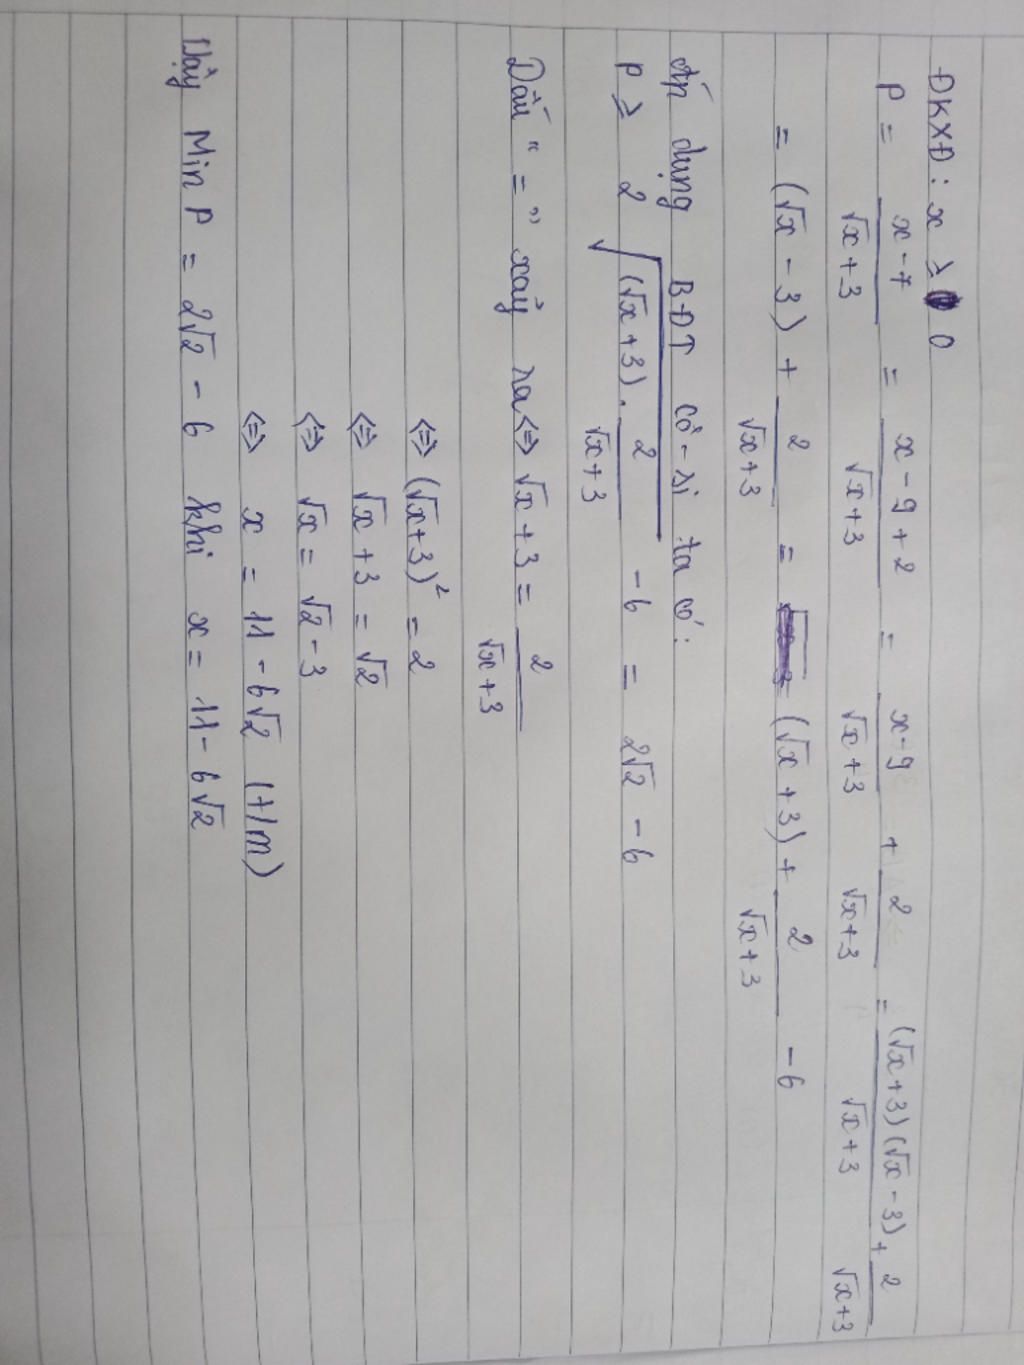 ĐKXĐ: x ≥ 0
P = \frac{x-7}{\sqrt{x}+3} = \frac{x-9+2}{\sqrt{x}+3} = \frac{x-9}{\sqrt{x}+3} + \frac{2}{\sqrt{x}+3} = \frac{(\sqrt{x}+3)(\sqrt{x}-3)}{\sqrt{x}+3} + \frac{2}{\sqrt{x}+3}
= (\sqrt{x}-3) + \frac{2}{\sqrt{x}+3} = (\sqrt{x}+3) + \frac{2}{\sqrt{x}+3} - 6
Áp dụng BĐT cô-si ta có:
P ≥ 2\sqrt{(\sqrt{x}+3).\frac{2}{\sqrt{x}+3}} - 6 = 2\sqrt{2} - 6
Dấu "=" xảy ra <=> \sqrt{x}+3 = \frac{2}{\sqrt{x}+3}
<=> (\sqrt{x}+3)² = 2
<=> \sqrt{x}+3 = \sqrt{2}
<=> \sqrt{x} = \sqrt{2}-3
<=> x = 11 - 6\sqrt{2} (t/m)
Vậy Min P = 2\sqrt{2} - 6 khi x = 11 - 6\sqrt{2}